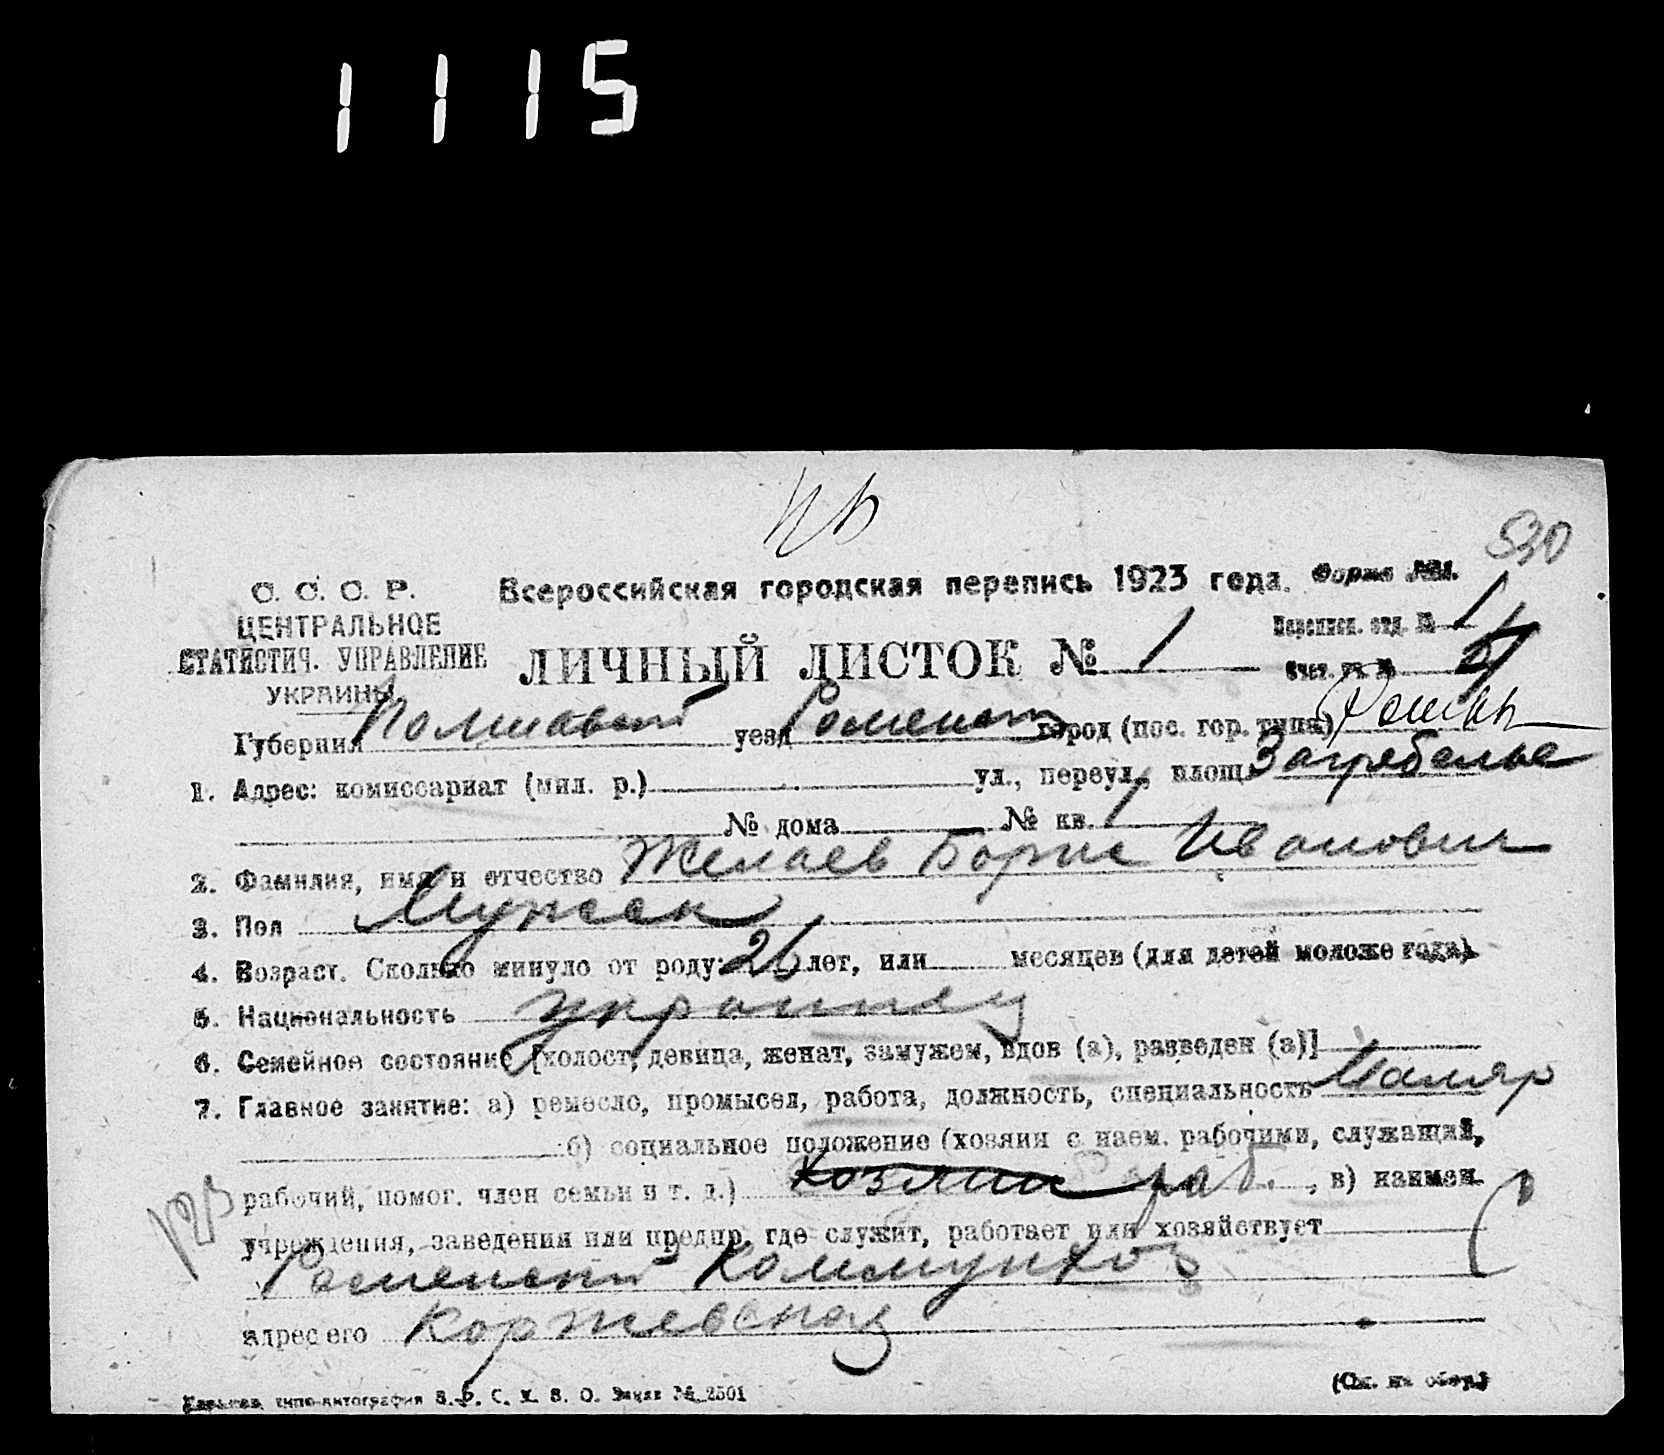 1115
530
С. С. С. Р.
ЦЕНТРАЛЬНОЕ
СТАТИСТИЧ. УПРАВЛЕНИЕ
УКРАИНЫ.
Всероссийская городская перепись 1923 года.
Форма №1.
ЛИЧНЫЙ ЛИСТОК № 1
Переписн. отд. № 1
Счет. уч. № 4
Губерния Полтавской уезд Роменский город (пос. гор. типа) Ромны
1. Адрес: комиссариат (мил. р.) ул., переул., площ. Загребелье
№ дома № кв. 1
2. Фамилия, имя и отчество Желаев Борис Иванович
3. Пол Мужск
4. Возраст. Сколько минуло от роду: 26 лет, или месяцев (для детей моложе года).
5. Национальность украинец
6. Семейное состояние [холост, девица, женат, замужем, вдов (а), разведен (а)]
7. Главное занятие: а) ремесло, промысел, работа, должность, специальность Маляр
б) социальное положение (хозяин с наем. рабочими, служащий,
рабочий, помог. член семьи и т. д.) Хозяин раб. , в) наимен.
учреждения, заведения или предпр. где служит, работает или хозяйствует
Роменский Коммунхоз
адрес его Коржевская
(См. на обор.)
Харьков, типо-литография В. Р. С. Х. В. О. Заказ № 2501